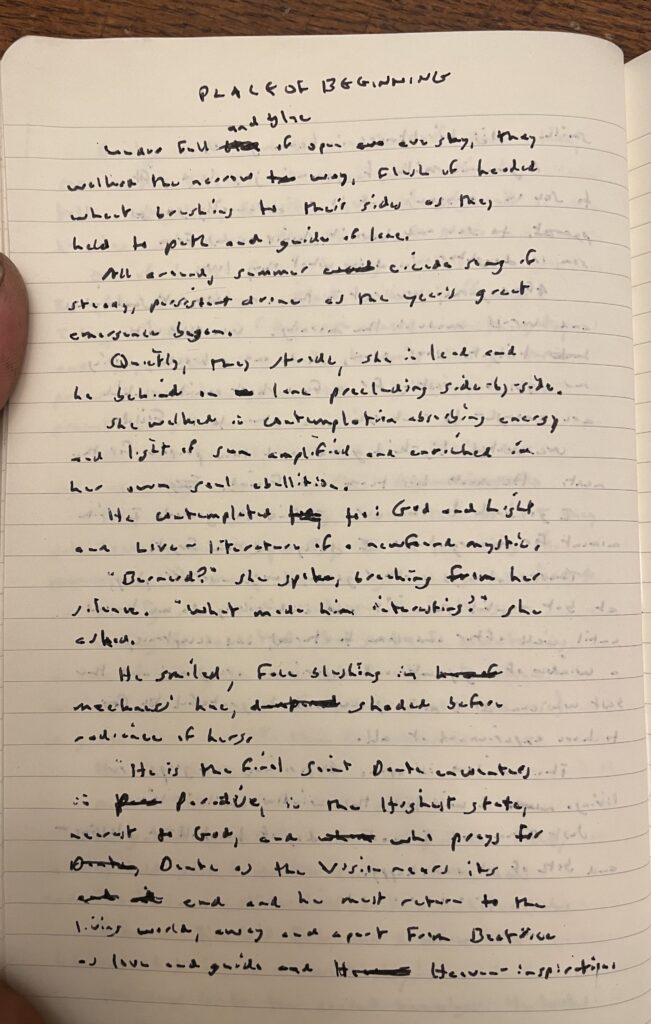 PLACE OF BEGINNING
and blue
Under full of open sky, they
walked the narrow way, flush of headed
wheat brushing to their sides as they
held to path and guide of lane.
All around, summer cicada song of
steady, persistent drone as the year's great
emergence began.
Quietly, they strode, she in lead and
he behind in lane precluding side-by-side.
She walked in contemplation absorbing energy
and light of sun amplified and enriched in
her own soul ebullition.
He contemplated too: God and Light
and Love - literature of a newfound mystic.
"Bernard?" she spoke, breaking from her
silence. "What made him interesting?" she
asked.
He smiled, face blushing in
hue, shaded before
radiance of hers.
"He is the final saint Dante encounters
in Paradise, in the Highest state,
nearest to God, and who prays for
Dante as the Vision nears its
end and he must return to the
living world, away and apart from Beatrice
as love and guide and Heaven-inspiration